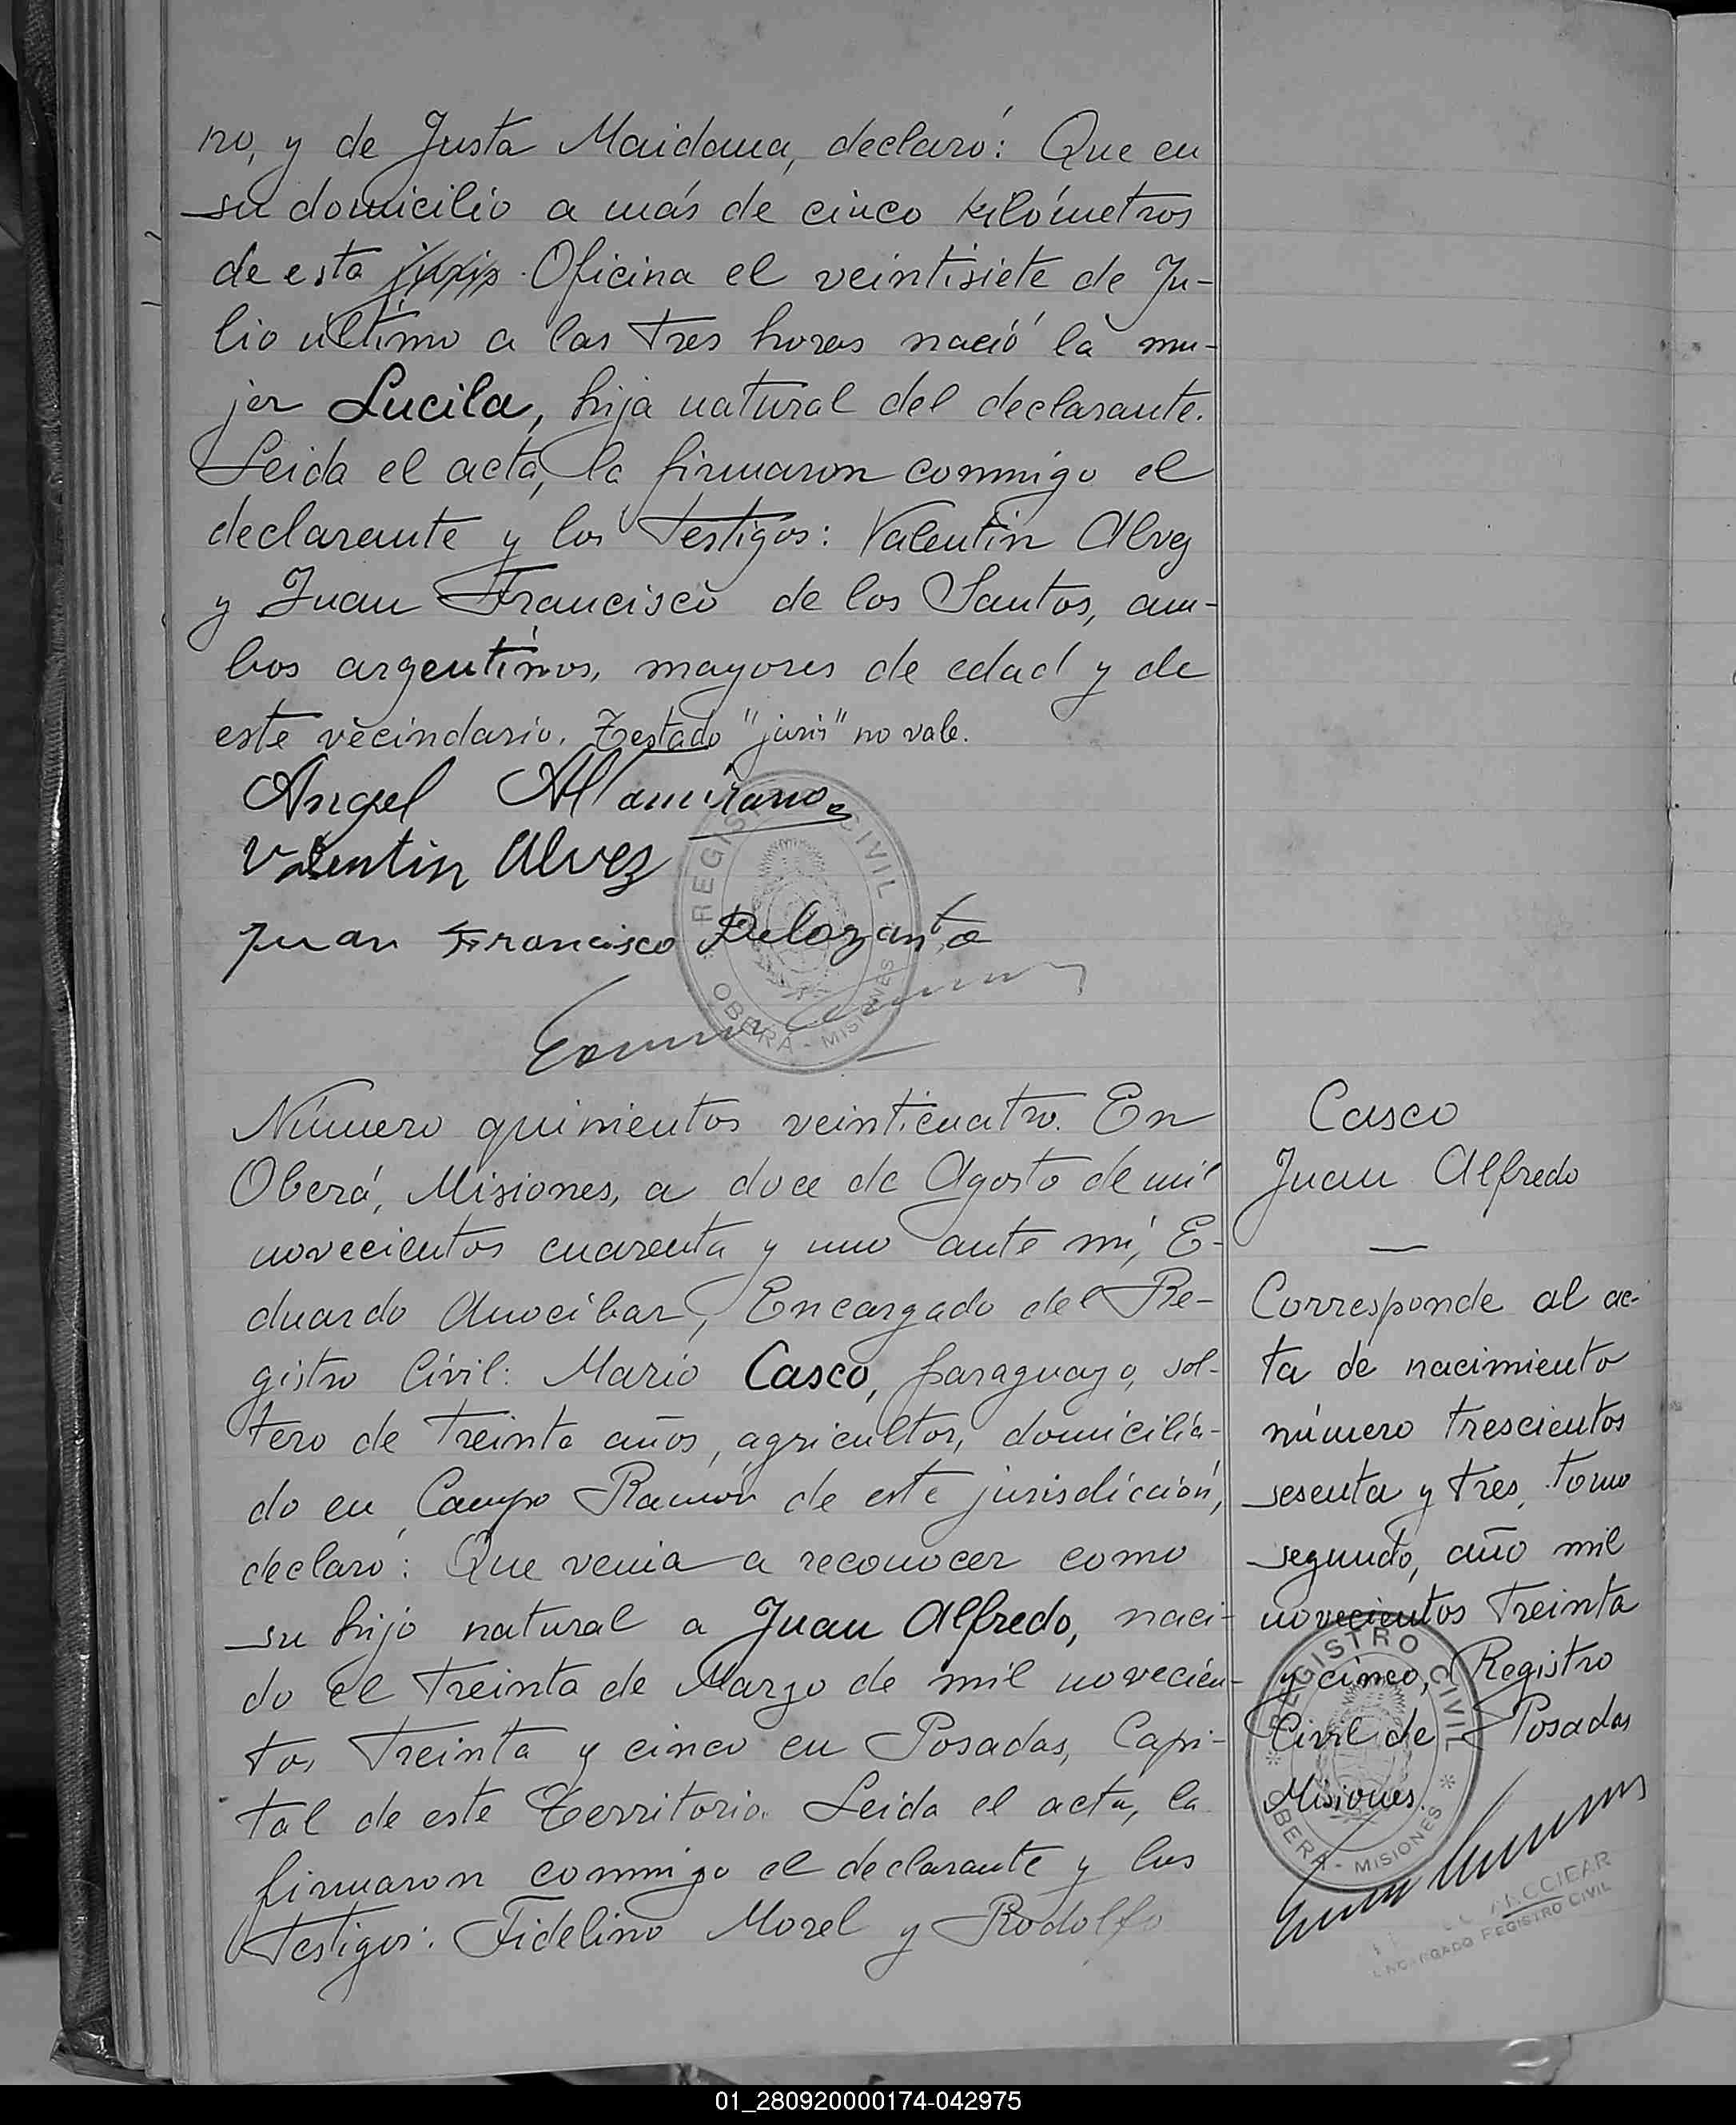 no, y de Justa Maidana, declaró: Que en
su domicilio a más de cinco kilómetros
de esta juris Oficina el veintisiete de Ju-
lio último a las tres horas nació la mu-
jer Lucila, hija natural del declarante.
Leida el acta, la firmaron conmigo el
declarante y los testigos: Valentin Alvez
y Juan Francisco de los Santos, am-
bos argentinos, mayores de edad y de
este vecindario. Testado "juris" no vale.
Angel Altamirano
Valentin Alvez
Juan Francisco Delozanto
REGISTRO CIVIL
OBERÁ - MISIONES
Número quinientos veinticuatro. En
Oberá, Misiones, a doce de Agosto de mil
novecientos cuarenta y uno ante mí, E-
duardo Anocibar, Encargado del Re-
gistro Civil: Mario Casco, paraguayo, sol-
tero de treinta años, agricultor, domicilia-
do en Campo Ramón de este jurisdicción,
declaró: Que venia a reconocer como
su hijo natural a Juan Alfredo, naci-
do el treinta de Marzo de mil novecien-
tos treinta y cinco en Posadas, Capi-
tal de este Territorio. Leida el acta, la
firmaron conmigo el declarante y los
testigos: Fidelino Morel y Rodolfo
Casco
Juan Alfredo
Corresponde al ac-
ta de nacimiento
número trescientos
sesenta y tres, tomo
segundo, año mil
novecientos treinta
y cinco, Registro
Civil de Posadas
Misiones.
REGISTRO CIVIL
OBERÁ - MISIONES
ENCARGADO REGISTRO CIVIL
01_280920000174-042975